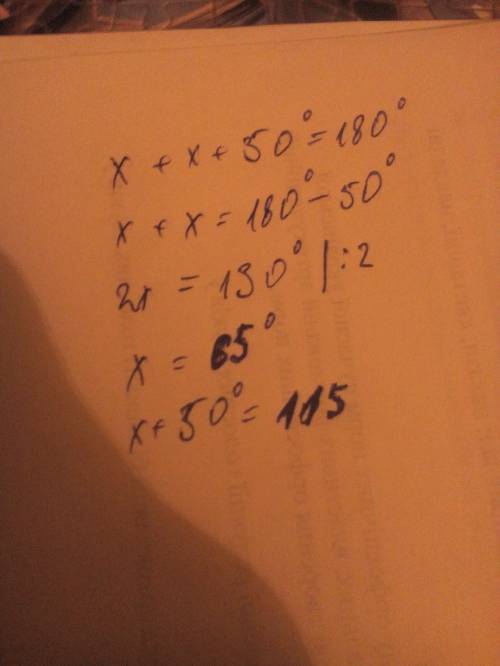 x + x + 50° = 180°
x + x = 180° - 50°
2x = 130° | : 2
x = 65°
x + 50° = 115